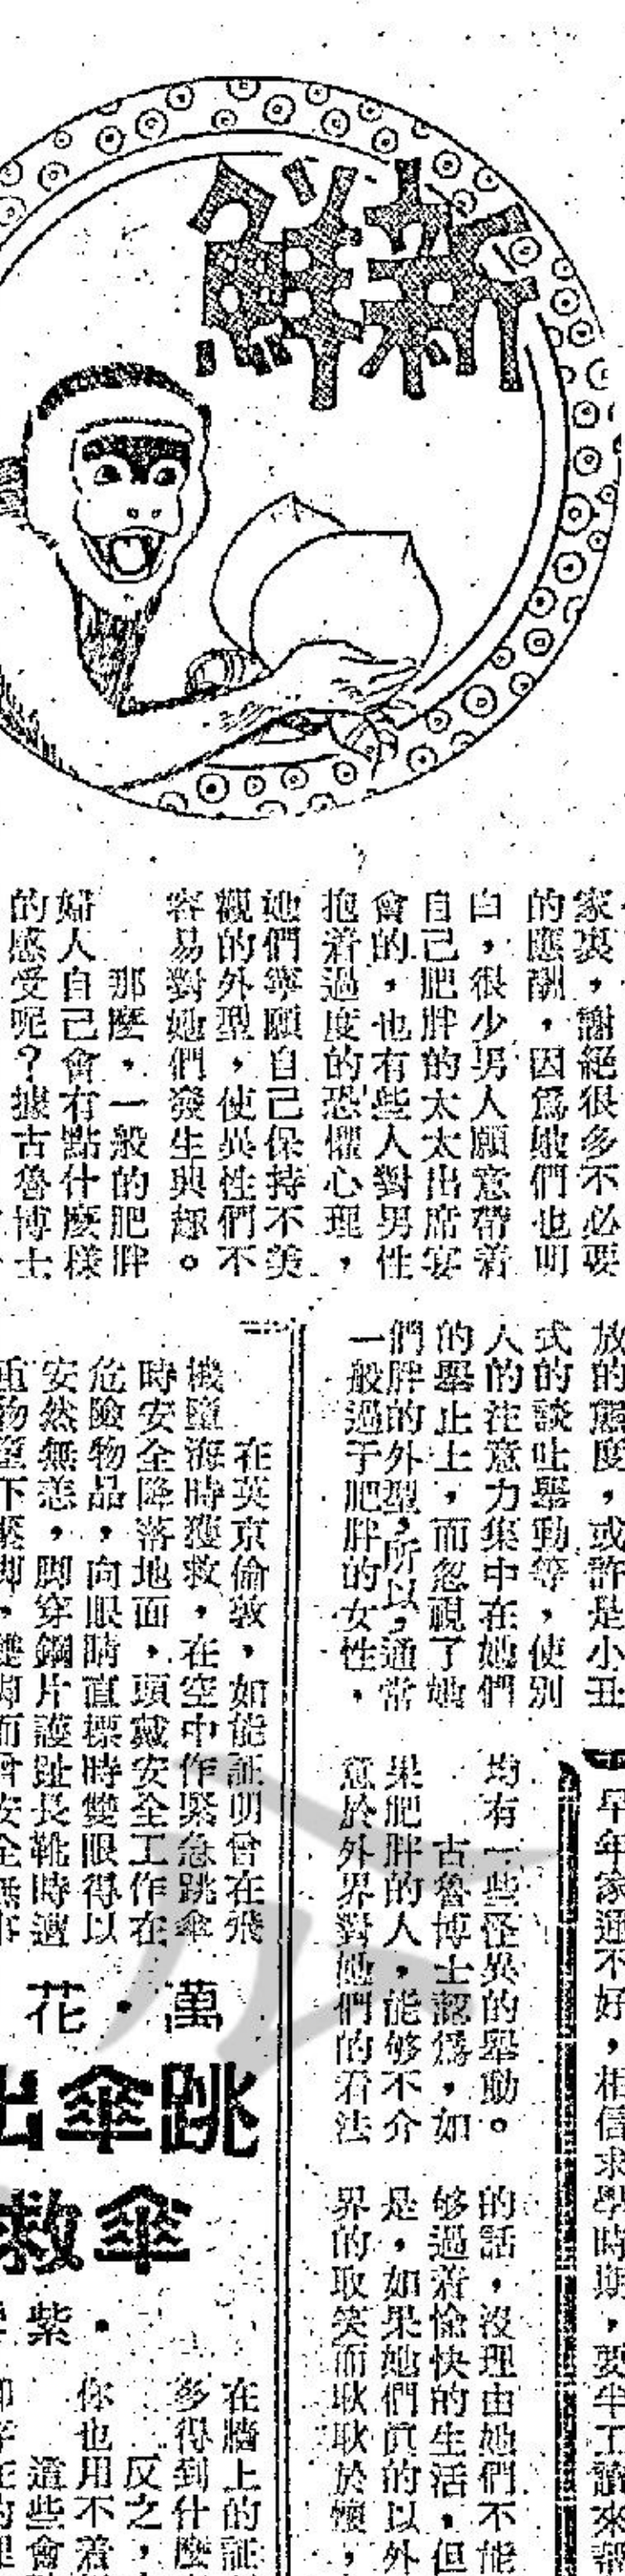 新鮮
家裏，謝絕很多不必要
的應酬，因爲她們也明
白，很少男人願意帶着
自己肥胖的太太出席宴
會的，也有些人對男性
抱着過度的恐懼心理，
她們寧願自己保持不美
觀的外型，使異性們不
容易對她們發生興趣。
那麼，一般的肥胖
婦人自己會有點什麼樣
的感受呢？據古魯博士
放的態度，或許是小丑
式的談吐舉動等，使別
人的注意力集中在她們
的舉止上，而忽視了她
們胖的外型，所以，通常
一般過于肥胖的女性，
均有一些怪異的舉動。
古魯博士認爲，如
果肥胖的人，能够不介
意於外界對她們的看法
的話，沒理由她們不能
够過着愉快的生活，但
是，如果她們真的以外
界的取笑而耿耿於懷，
早年家道不好，相信求學時期，要半工讀來
萬・花
跳傘出
傘救
・紫
在英京倫敦，如能証明曾在飛
機墮海時獲救，在空中作緊急跳傘
時安全降落地面，頭戴安全工作在
危險物品，向眼睛直標時雙眼得以
安然無恙，脚穿鋼片護趾長靴時遭
重物墮下壓脚，雙脚而曾安全無事
在牆上的証
多得到什麼
反之，
你也用不着
這些會